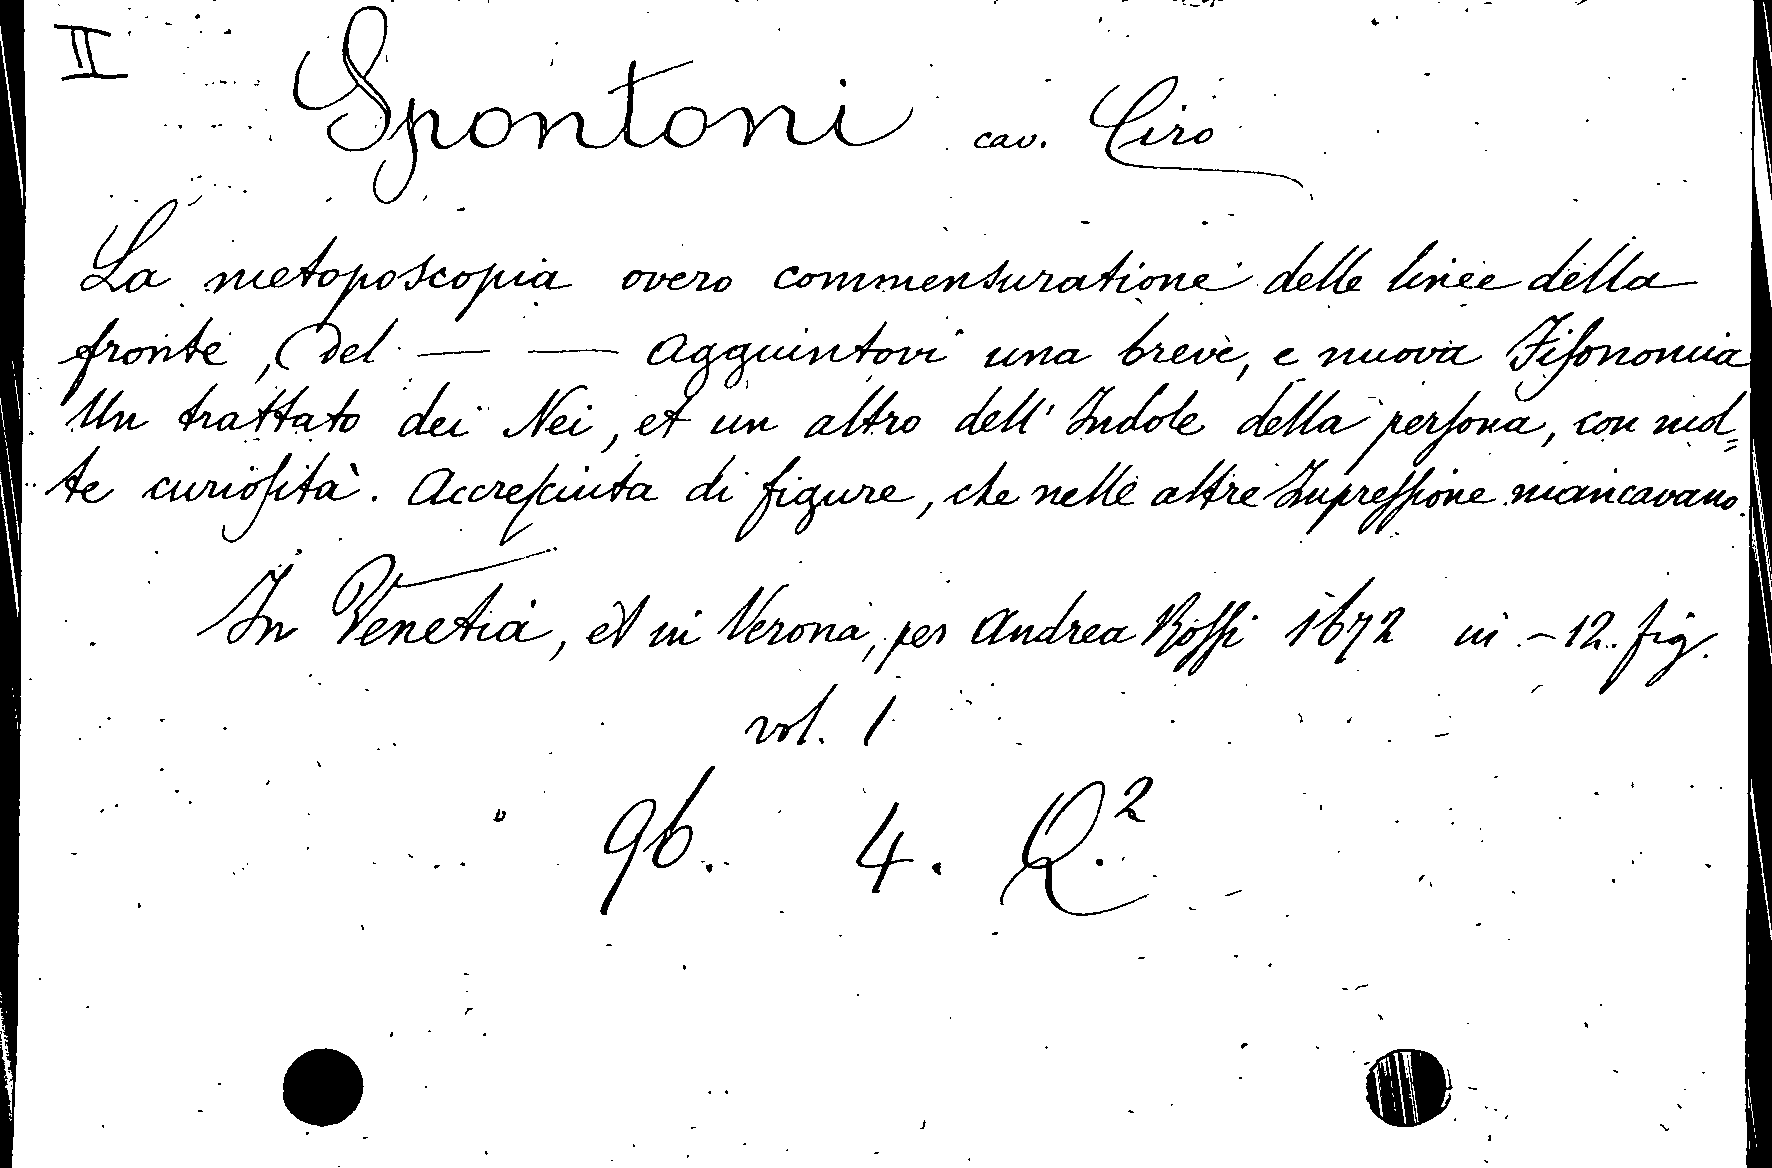 II
Spontoni cav. Ciro
La metoposcopia overo commensuratione delle linee della
fronte, Del — — Aggiuintovi una breve, e nuova Fiſonomia
Un trattato dei Nei, et un altro dell' Indole della perſona, con mol=
te curioſità. Accreſciuta di figure, che nelle altre Impreſſione mancavano.
In Venetia, et in Verona, per Andrea Roſſi 1672 in -12. fig.
vol. 1
96. 4. Q.²